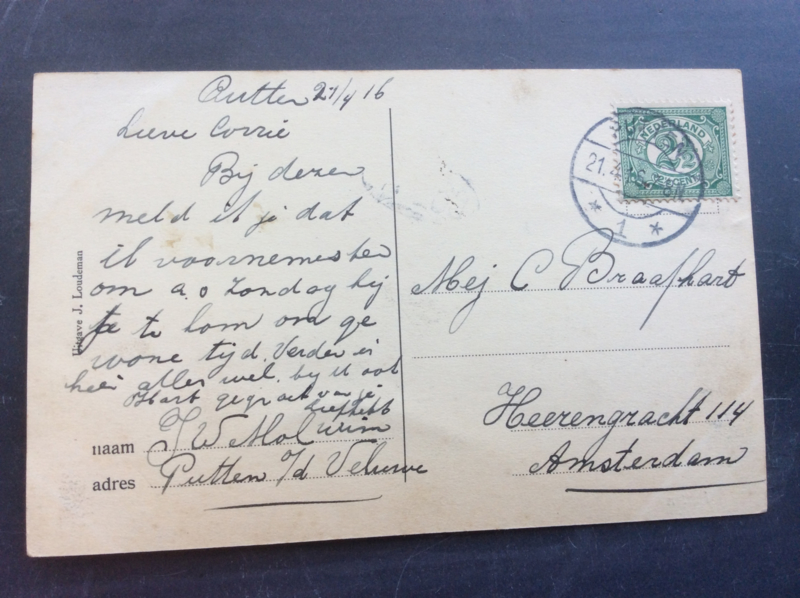 Putten 21/4 16
Lieve Corrie
Bij dezen
meld ik je dat
ik voornemesten
om a.s Zondag bij
je te kom om ge
wone tijd. Verder is
hier alles wel. bij U ook
Hart. gegroet van je
liefhebb
J W Mol Wim
naam
adres Putten o/d Veluwe
Uitgave J. Loudeman
NEDERLAND
2½
2½ CENT
21.4
1
Mej C Braafhart
Heerengracht 114
Amsterdam